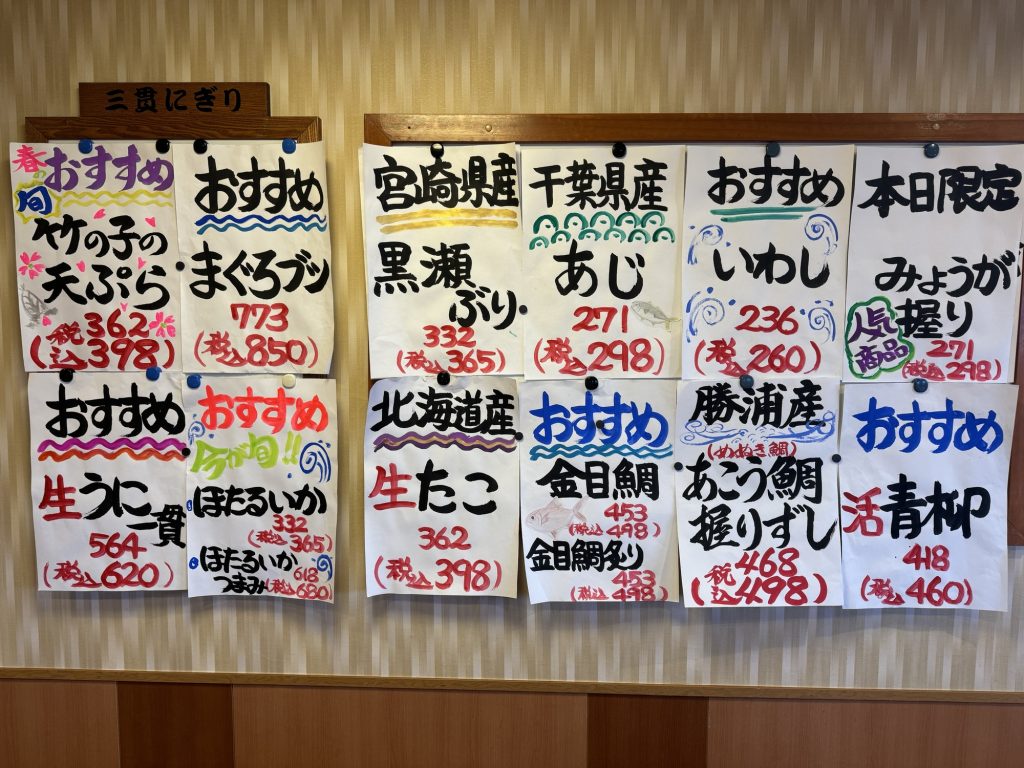 三貫にぎり
春の
旬
おすすめ
竹の子の
天ぷら
362
(税込398)
おすすめ
まぐろブツ
773
(税込850)
おすすめ
生うに一貫
564
(税込620)
おすすめ
今が旬!!
ほたるいか
332
(税込365)
ほたるいか
つまみ 618
(税込680)
宮崎県産
黒瀬
ぶり
332
(税込365)
千葉県産
あじ
271
(税込298)
おすすめ
いわし
236
(税込260)
本日限定
みょうが
握り
人気
商品
271
(税込298)
北海道産
生たこ
362
(税込398)
おすすめ
金目鯛
453
(税込498)
金目鯛炙り
453
(税込498)
勝浦産
(めぬき鯛)
あこう鯛
握りずし
468
(税込498)
おすすめ
活青柳
418
(税込460)